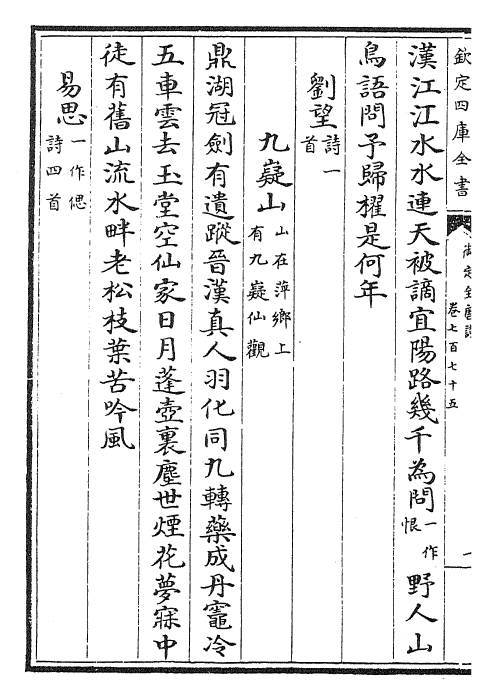 欽定四庫全書
御定全唐詩
卷七百七十五
一
漢江江水水連天被謫宜陽路幾千為問一作恨野人山
鳥語問予歸櫂是何年
劉望詩一首
九嶷山山在萍鄉上有九嶷仙觀
鼎湖冠劍有遺蹤晉漢真人羽化同九轉藥成丹竈冷
五車雲去玉堂空仙家日月蓬壺裏塵世煙花夢寐中
徒有舊山流水畔老松枝葉苦吟風
易思一作偲詩四首